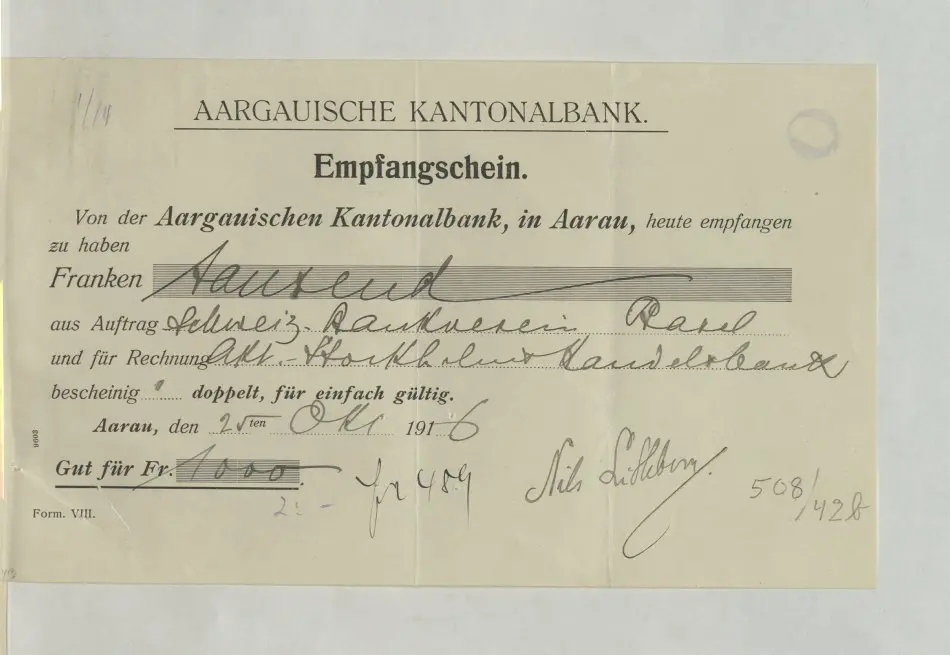 1/14
AARGAUISCHE KANTONALBANK.
Empfangschein.
Von der Aargauischen Kantonalbank, in Aarau, heute empfangen
zu haben
Franken tausend
aus Auftrag Schweiz. Bankverein Basel
und für Rechnung Akt. Stockholms Handelsbank
bescheinig " doppelt, für einfach gültig.
Aarau, den 25ten Okt 1916
Gut für Fr. 1000
2: -
fr 489
Nils
508/428
Form. VIII.